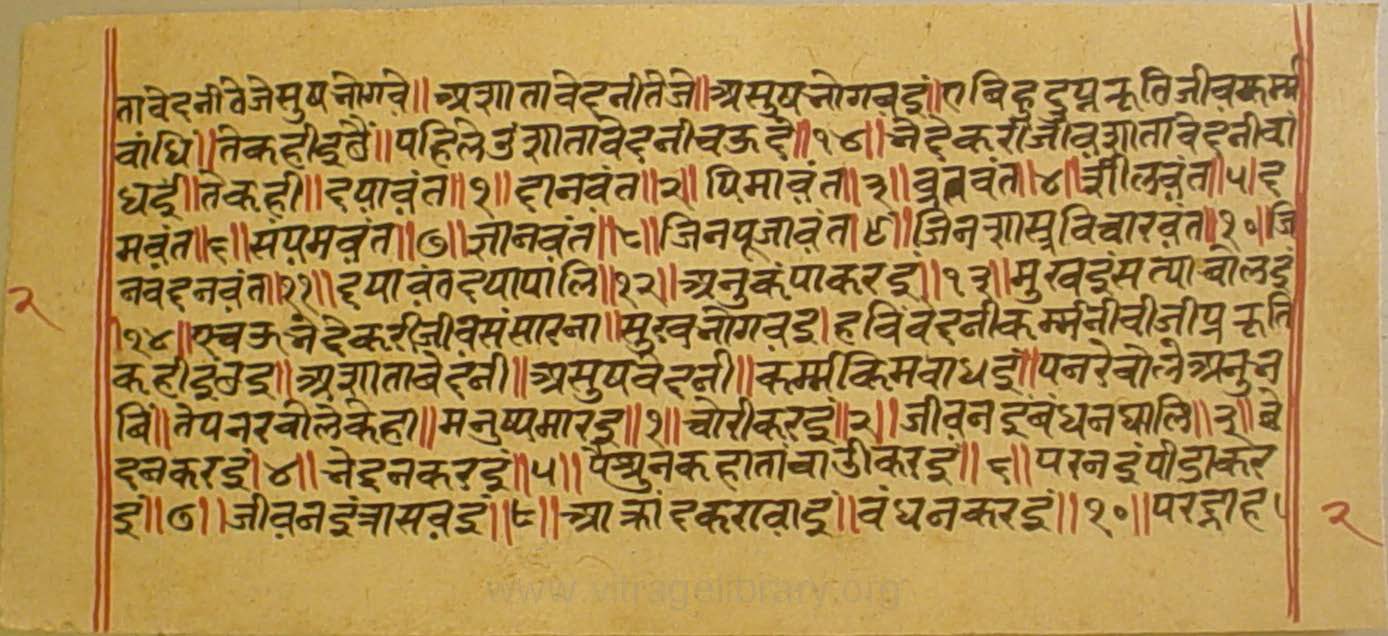 तावेदनीतेजेसुषभोगवे॥अशातावेदनीतेजे॥असुषभोगवइं॥एबिहुदुप्रकृतिजीवकर्म्म
बांधि॥तेकहीइछैं॥पहिलेउंशातावेदनीचऊदे॥१४॥भेदेकरीजीवशातावेदनीबां
धइं॥तेकही॥दयावंत॥१॥दानवंत॥२॥षिमावंत॥३॥व्रतवंत॥४॥शीलवंत॥५।द
मवंत॥६॥संयमवंत॥७॥ज्ञानवंत॥८॥जिनपूजावंत।९॥जिनशासविचारवंत॥१०॥जि
नवदनवंत॥११॥दयावंतदयापालि॥१२॥अनुकंपाकरइं॥१३॥मुखइंसत्याबोलइं
॥१४॥एचऊभेदेकरीजीवसंसारना॥सुखभोगवइ।हविंवेदनीकर्म्मनीबीजीप्रकृति
कहीइछइ॥अशाताबेदनी॥असुषवेदनी॥कर्म्मकिमबाधइं॥पनरेबोलेअनुभ
बिं॥तेपनरबोलेकेहा॥मनुष्यमारइ॥१॥चोरीकरइं॥२॥जीवनइंबंधनघालि॥३॥छे
दनकरइं।४॥भेदनकरइं॥५॥पैशुनकहातांचाडीकरइं॥६॥परनइंपीडाकर
इं॥७॥जीवनइंत्रासवइं॥८॥आक्रांदकरावाइं॥वंधनकरइं॥१०॥परद्रोह
२
२
www.vitragelibrary.org